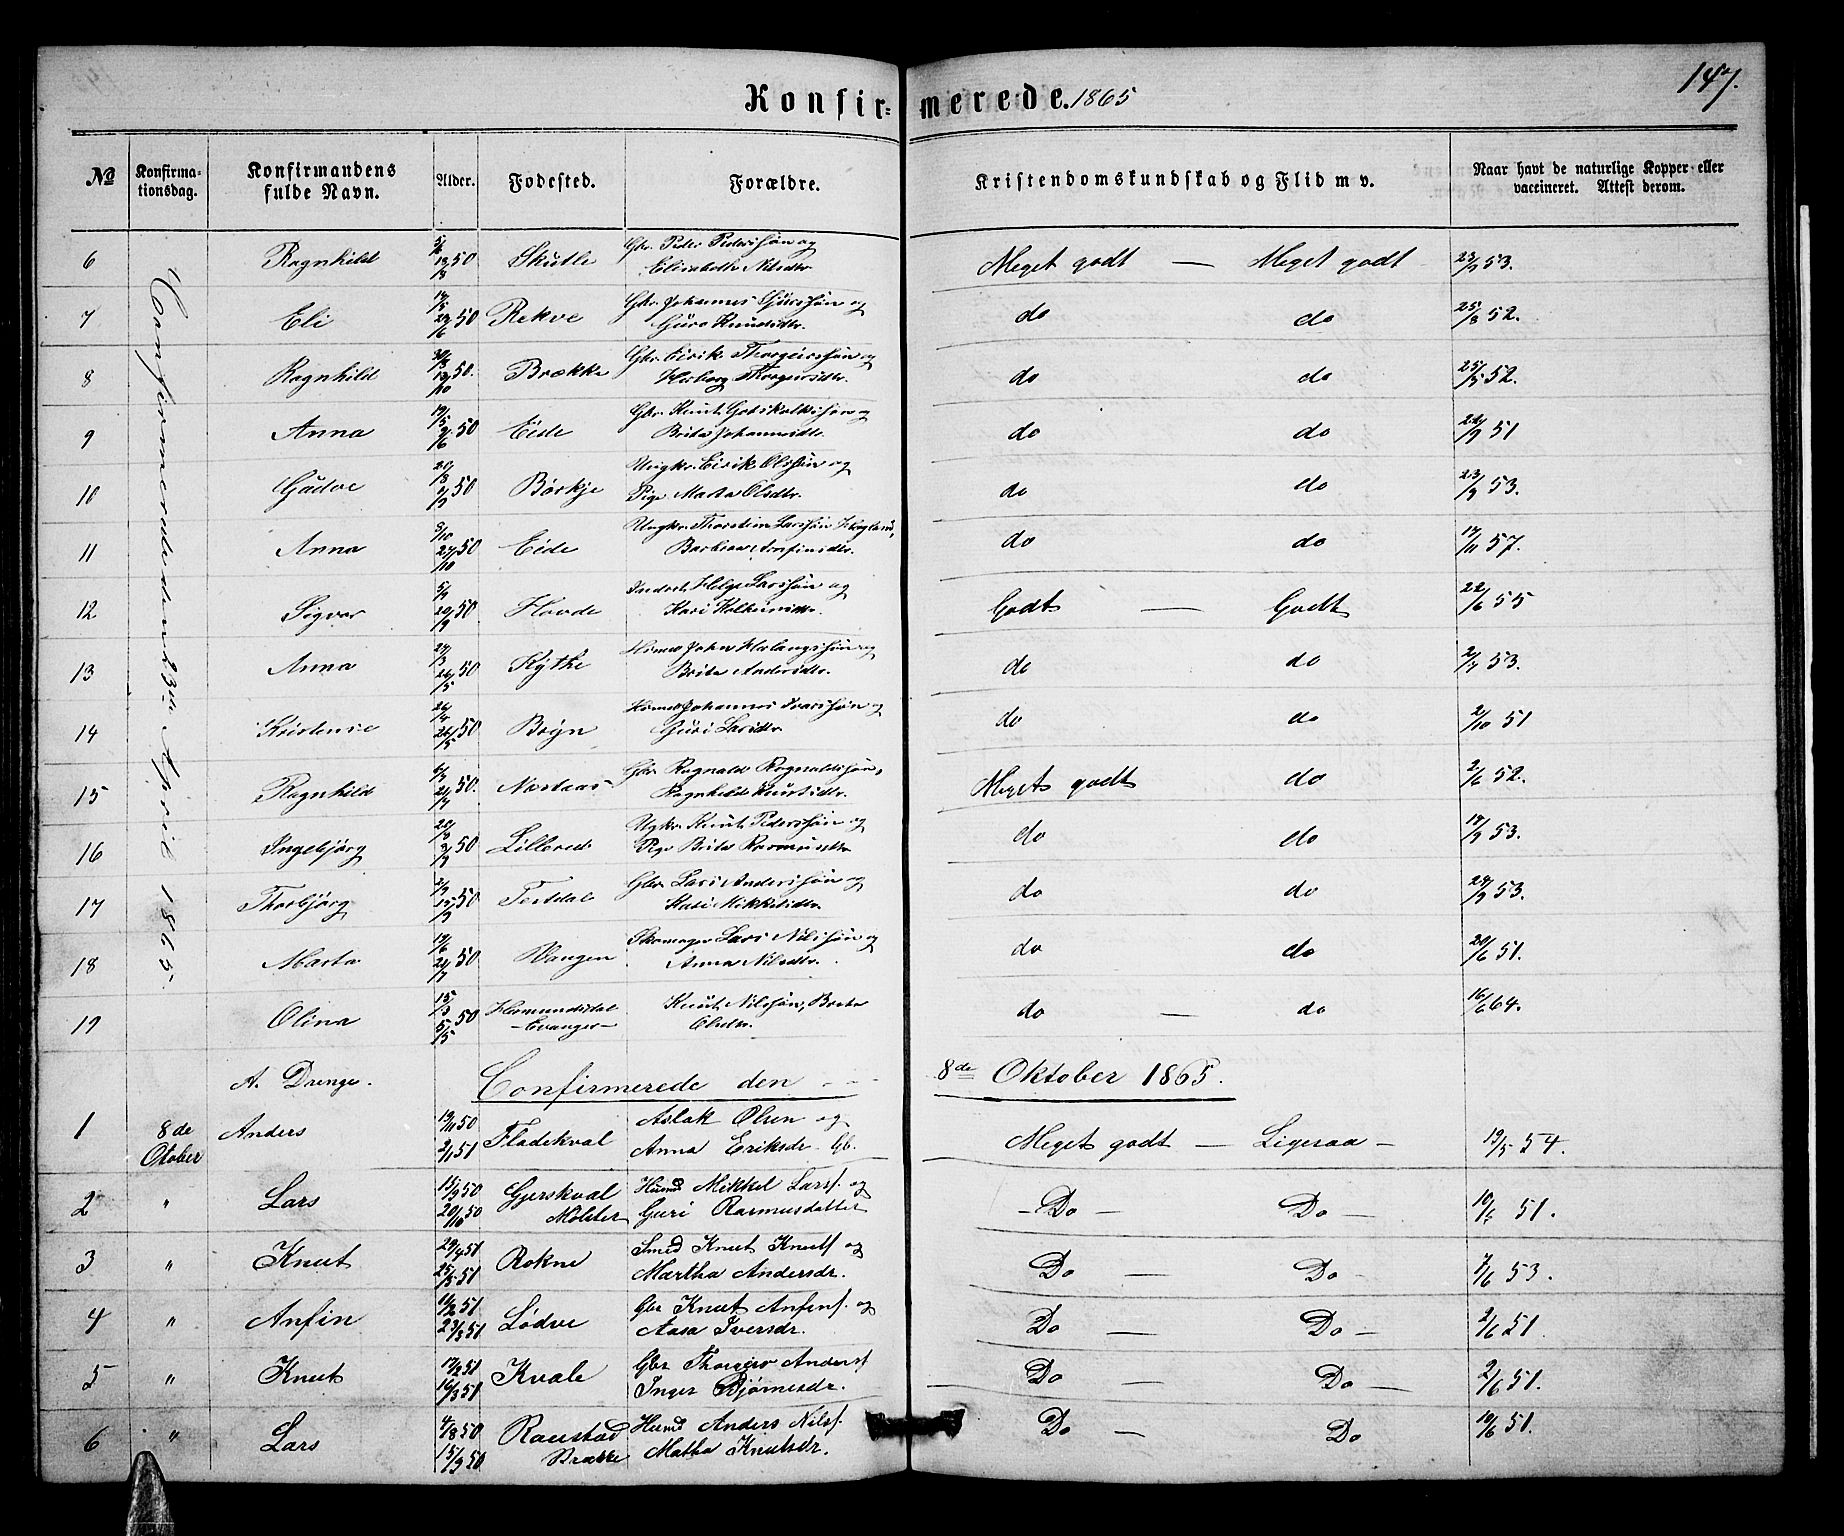 147.
Konfirmerede. 1865
№ Konfirmationsdag. Konfirmandens fulde Navn. Alder. Fodested. Forældre. Kristendomskundskab og Flid m v. Naar havt de naturlige Kopper eller vaccineret. Attest derom.
Confirmerede den 23de April 1865.
6 Ragnhild 50 Skutle Gbr. Peder Pedersøn og Elisabeth Nilsdtr. Meget godt — Meget godt 53.
7 Eli 50 Rekve Gbr. Johannes Sjursøn og Guro Knutsdtr. do do 25/8 52.
8 Ragnhild 50. Brække Gbr. Eirik Thorgeirsøn og Thorgeirsdtr. do do 25/5 52.
9 Anna 50 Eide Gbr. Knut Gotskalksøn og Brita Johannesdtr. do do 51
10 Gudve 50 Børkje Ungkr. Eirik Olsøn og Pige Marta Olsdtr. do do 53.
11 Anna 50 Eide Ungkr. Thorstein Larsøn Barbra Arnfinsdtr. do do 17/11 57.
12 Sigvor 50 Hovde Inderst. Helge Larsøn og Kari do Godt — Godt 22/6 55
13 Anna 50 Kytke Huusmd John og Brita Andersdtr. do do 53.
14 Kristense 50 Bryn Huusmd Johannes Ivarsøn og Guri Larsdtr. do do 2/10 51
15 Ragnhild 50. Nostaas Gbr. Ragnald Ragnaldsøn, Ragnhild Knutsdtr. Meget godt do 2/6 52.
16 Ingebjørg 50 Lillered Ugkr. Knut Pedersøn og Pige Brita Rasmusdtr do do 53.
17 Thorbjørg 50 Tertdal Gbr. Lars Andersøn og Kari Mikkelsdtr. do do 53.
18 Marta 50 Vangen Skomager Lars Nilsøn og Anna Nilsdtr. do do 20/6 51.
19 Olina 15/3 5/5 50 Hermundsdal — Evanger — Knut Nilsøn, Brita Olsdtr. do — do 16/6 64.
A. Drenge. Confirmerede den 8de Oktober 1865.
1 8de Otober Anders 19/11 50 2/1 51 Fladekval Aslak Olsen og Anna Eriksdr. Gb. Meget godt — Ligesaa — 19/5 54.
2 " Lars 15/9 50 20/10 50 Gjerskval Mølster Husmd Mikkel Larsf. og Guri Rasmusdatter — Do — Do — 51.
3 " Knut 29/4 51 25/5 51 Rokne Smed Knut Knutf og Martha Andersdr. Do — Do — 53.
4 " Anfin 51 23/3 51 Lødve Gbr Knut Anfinf. og Aasa Iversdr. Do — Do — 2/6 51.
5 " Knut 17/2 51 16/3 51 Kvale Gbr Thorgeir Andersf Inger Bjørnesdr. Do — Do — 2/6 51.
6 " Lars 4/8 50 15/9 50 Raustad Brække Husmd Anders Nilsf. Matha Knutsdr. Do — Do 19/6 51.